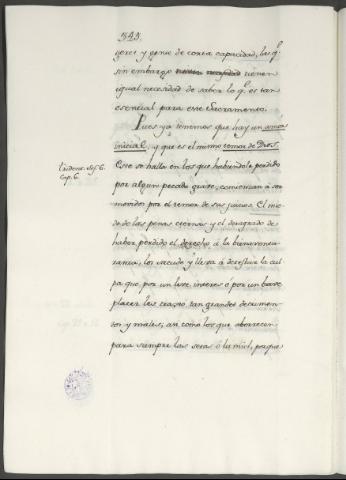 343.
yores y gente de corta capacidad, las q.e
sin embargo tienen
igual necesidad de saber lo q.e es tan
esencial para este Sacramento.
Pues ya tenemos que hay un amor
inicial, y que es el mismo temor de Dios.
Tridene. Sess. 6.
Cap. 6.
Este se halla en los que habiendole perdido
por algun pecado grave, comienzan á ser
movidos por el temor de sus juicios. El mie-
do de las penas eternas y el desagrado de
haber perdido el derecho á la bienaventu-
ranza, los sacude y lleva á detestar la cul-
pa que, por un leve interes ó por un breve
placer les trajo tan grandes detrimen-
tos y males; asi como los que aborrecen
para siempre las setas ó la miel, porque